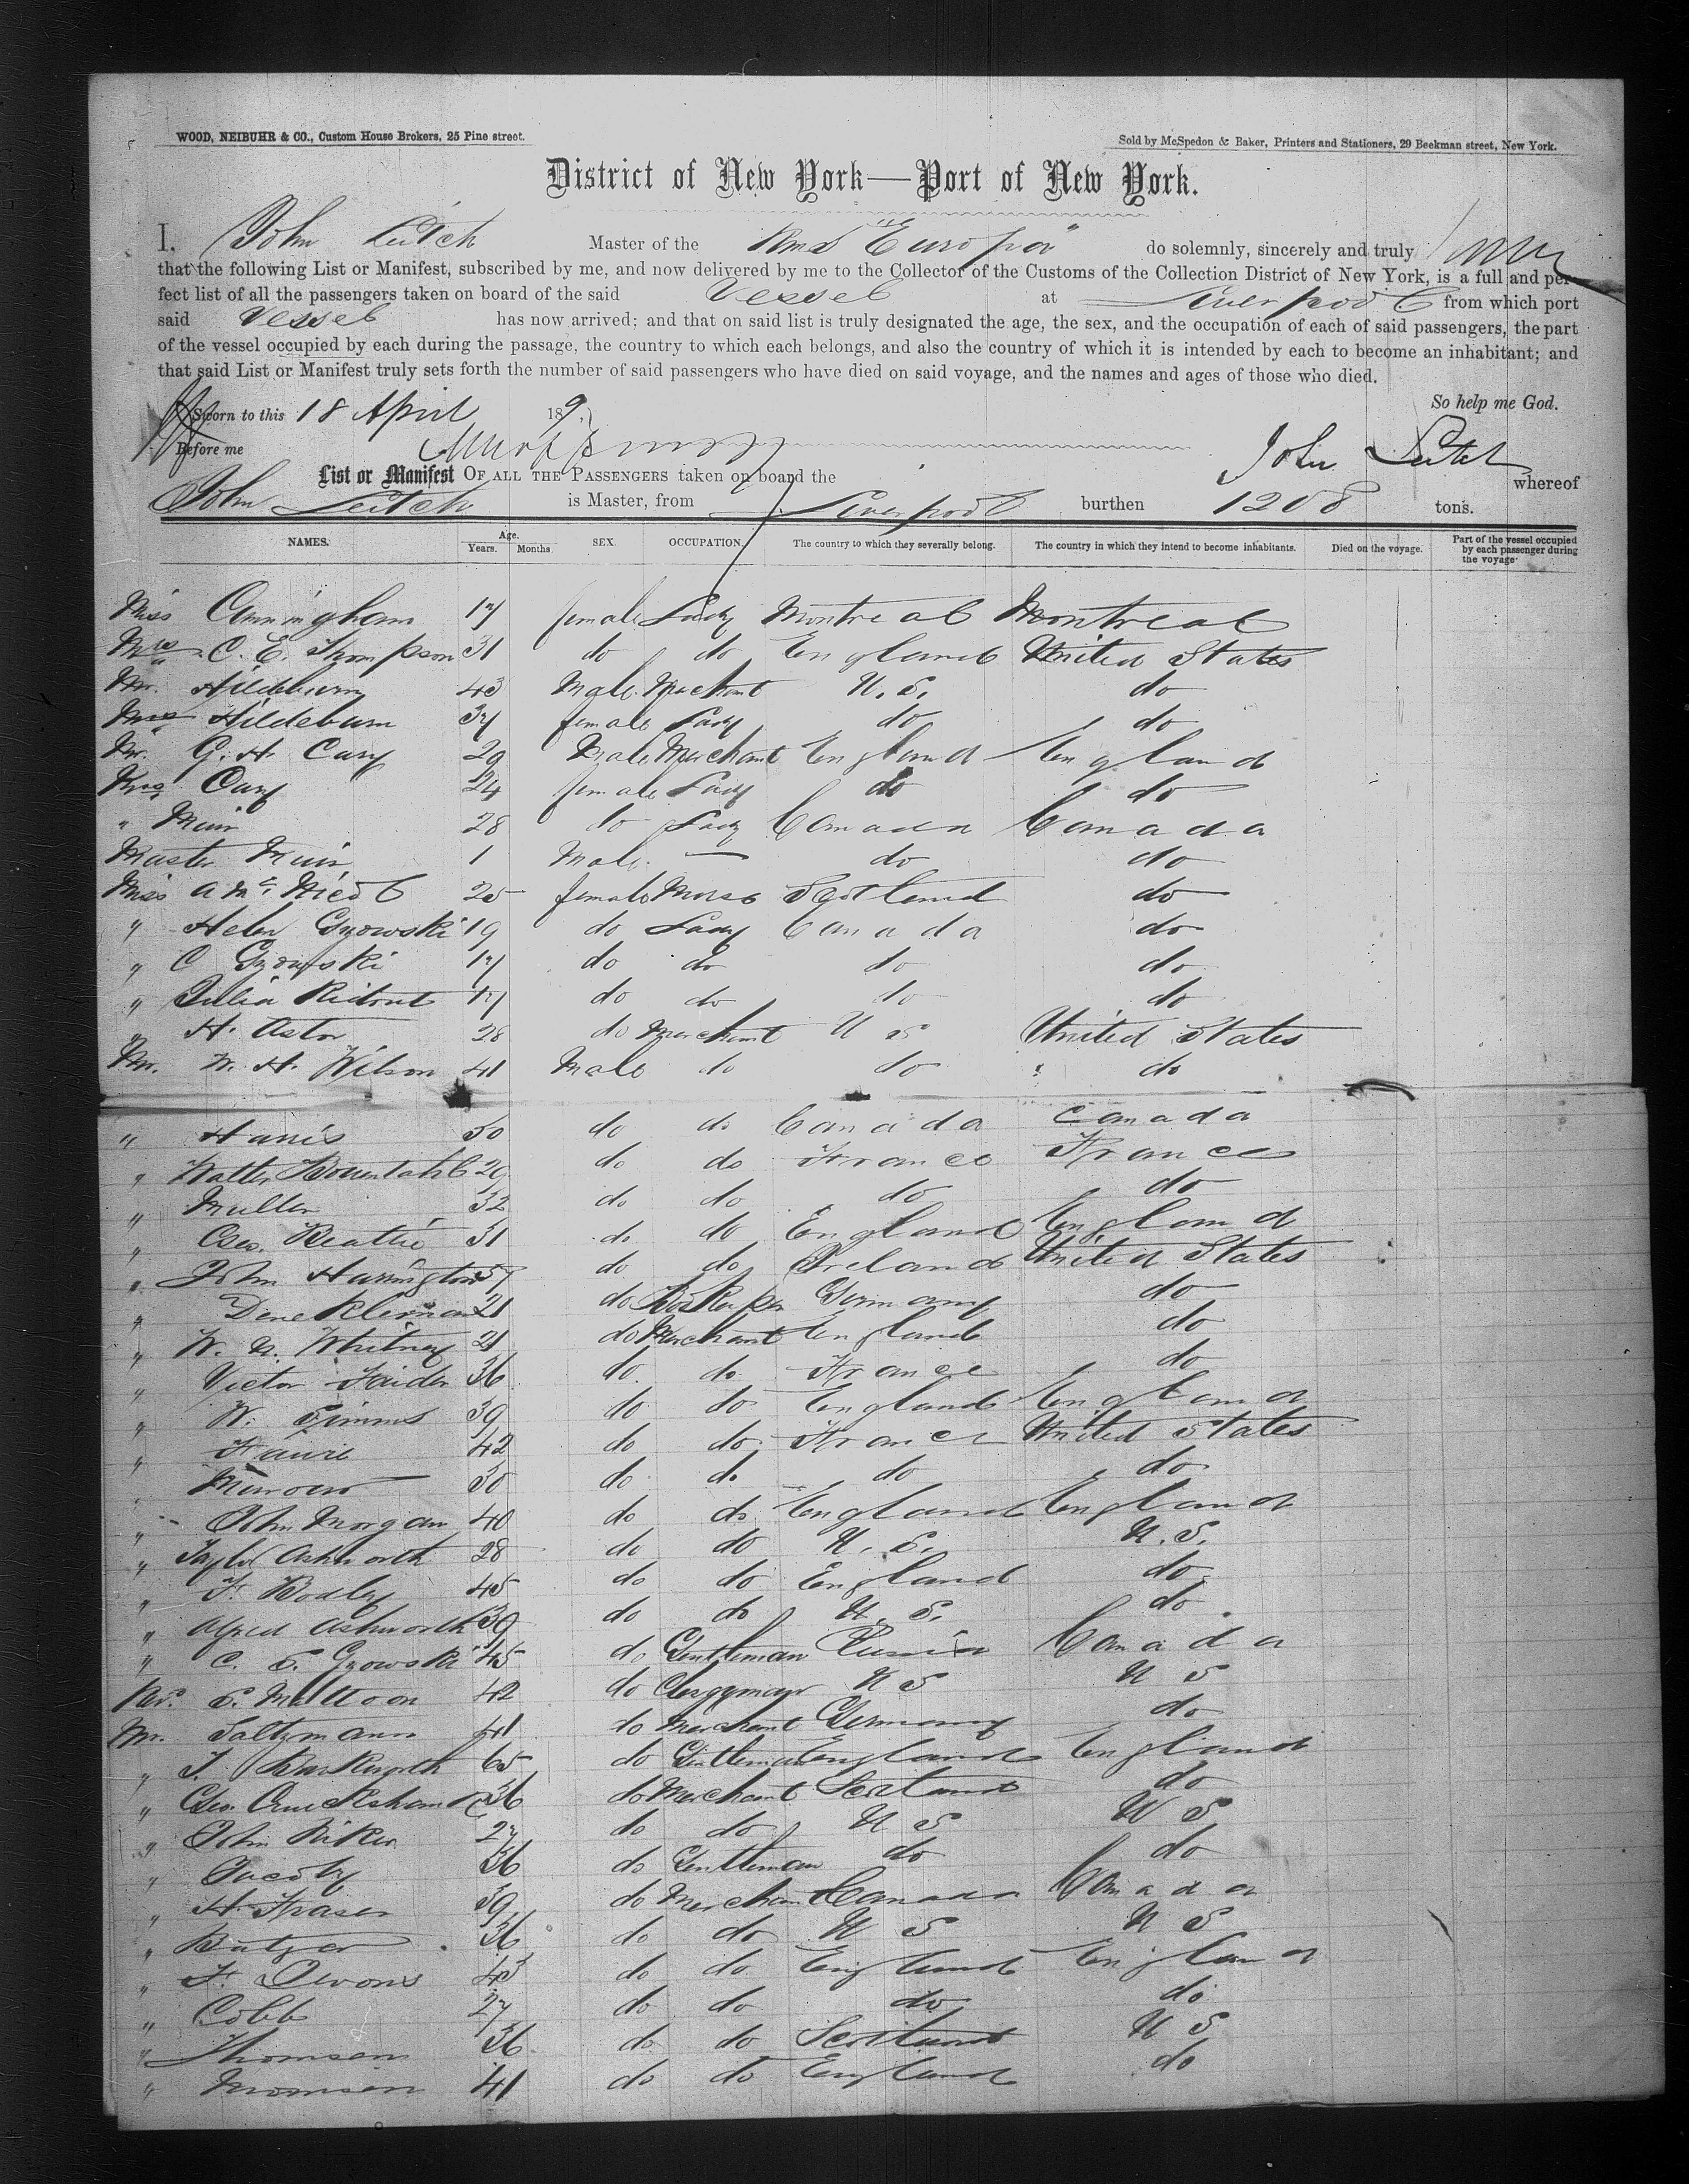 WOOD, NEIBUHR & CO., Custom House Brokers, 25 Pine street.
Sold by McSpedon & Baker, Printers and Stationers, 29 Beekman street, New York.
District of New York—Port of New York.
I. John Leitch Master of the RMS "Europa" do solemnly, sincerely and truly
that the following List or Manifest, subscribed by me, and now delivered by me to the Collector of the Customs of the Collection District of New York, is a full and per-
fect list of all the passengers taken on board of the said Vessel at Liverpool from which port
said Vessel has now arrived; and that on said list is truly designated the age, the sex, and the occupation of each of said passengers, the part
of the vessel occupied by each during the passage, the country to which each belongs, and also the country of which it is intended by each to become an inhabitant; and
that said List or Manifest truly sets forth the number of said passengers who have died on said voyage, and the names and ages of those who died.
So help me God.
Sworn to this 18 April 189
Before me
John Leitch
List or Manifest OF ALL THE PASSENGERS taken on board the whereof
John Leitch is Master, from Liverpool burthen 1208 tons.
NAMES. Age. Years. Months. SEX. OCCUPATION. The country to which they severally belong. The country in which they intend to become inhabitants. Died on the voyage. Part of the vessel occupied by each passenger during the voyage
Miss Cunningham 17 female Lady Montreal Montreal
Mrs C. E. Thompson 31 do do England United States
Mr. Hildeburn 43 Male Merchant U.S. do
Mrs Hildeburn 37 female Lady do do
Mr. G. H. Cary 29 Male Merchant England England
Mrs Cary 24 female Lady do do
" Muir 28 do Lady Canada Canada
Master Muir 1 Male — do do
Miss A McNicol 25 female Nurse Scotland do
" Helen Gzowski 19 do Lady Canada do
" C Gzowski 17 do do do do
" Julia Ridout 17 do do do do
" H. Astor 28 do Merchant U S United States
Mr. W. H. Wilson 41 Male do do " do
" Harris 30 do do Canada Canada
" Walter 29 do do France France
" Muller 32 do do do do
" Geo. Beattie 31 do do England England
" John Harrington 37 do do Ireland United States
" 21 do Germany do
" W. N. Whitney 21 do Merchant England do
" Victor 36 do do France do
" W. Simms 39 do do England England
" 42 do do France United States
" 30 do do do do
" John Morgan 40 do do England England
" Taylor Ashworth 28 do do U.S. U.S.
" F. 45 do do England do
" Alfred Ashworth 39 do do U.S. do
" C. S. Gzowski 45 do Gentleman Canada
Rev. S. Mattoon 42 do Clergyman U S U S
Mr. Saltzmann 41 do Merchant Germany do
" T. Barkworth 65 do Gentleman England England
" Geo. Cruickshank 36 do Merchant Scotland do
" John Riker 27 do do U S U S
" Jacoby 36 do Gentleman do do
" H. Fraser 39 do Merchant Canada Canada
" 36 do do U S U S
" 43 do do England England
" Cobb 27 do do do do
" Thomson 36 do do Scotland U S
" 41 do do England do